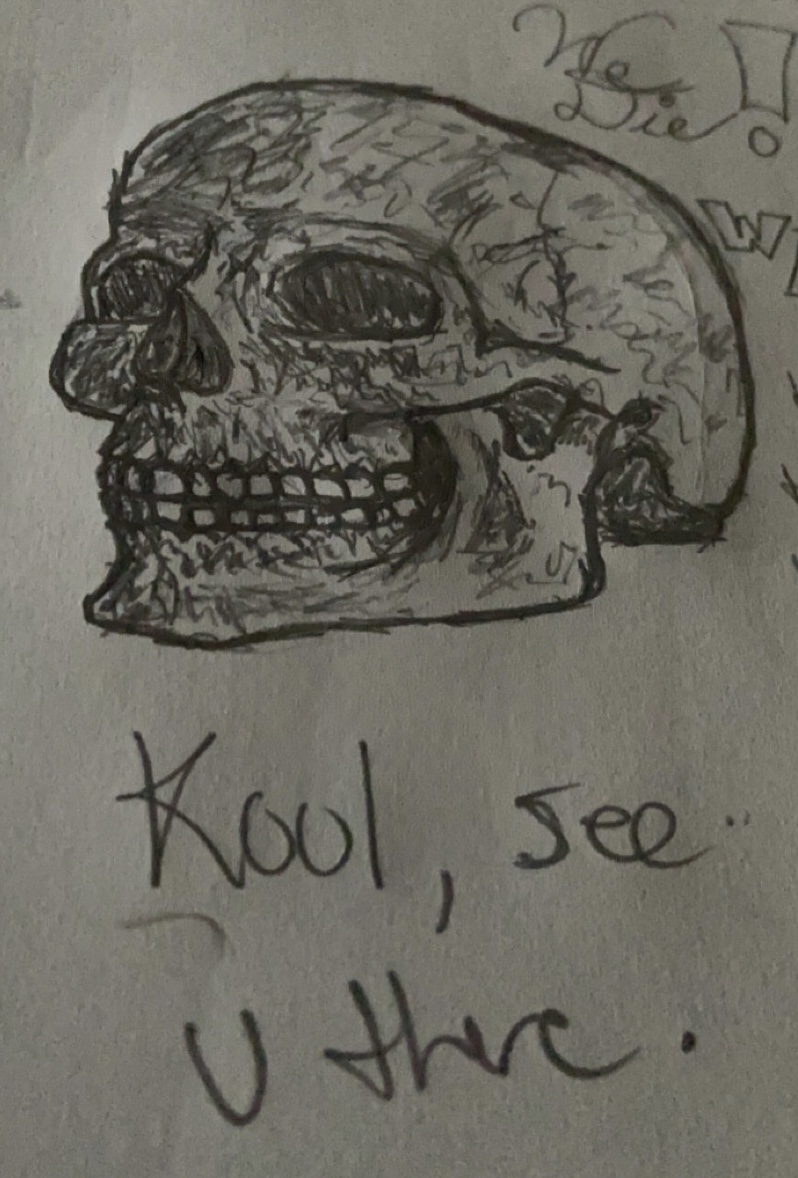 We
Die!
W
Kool, see..
U there.